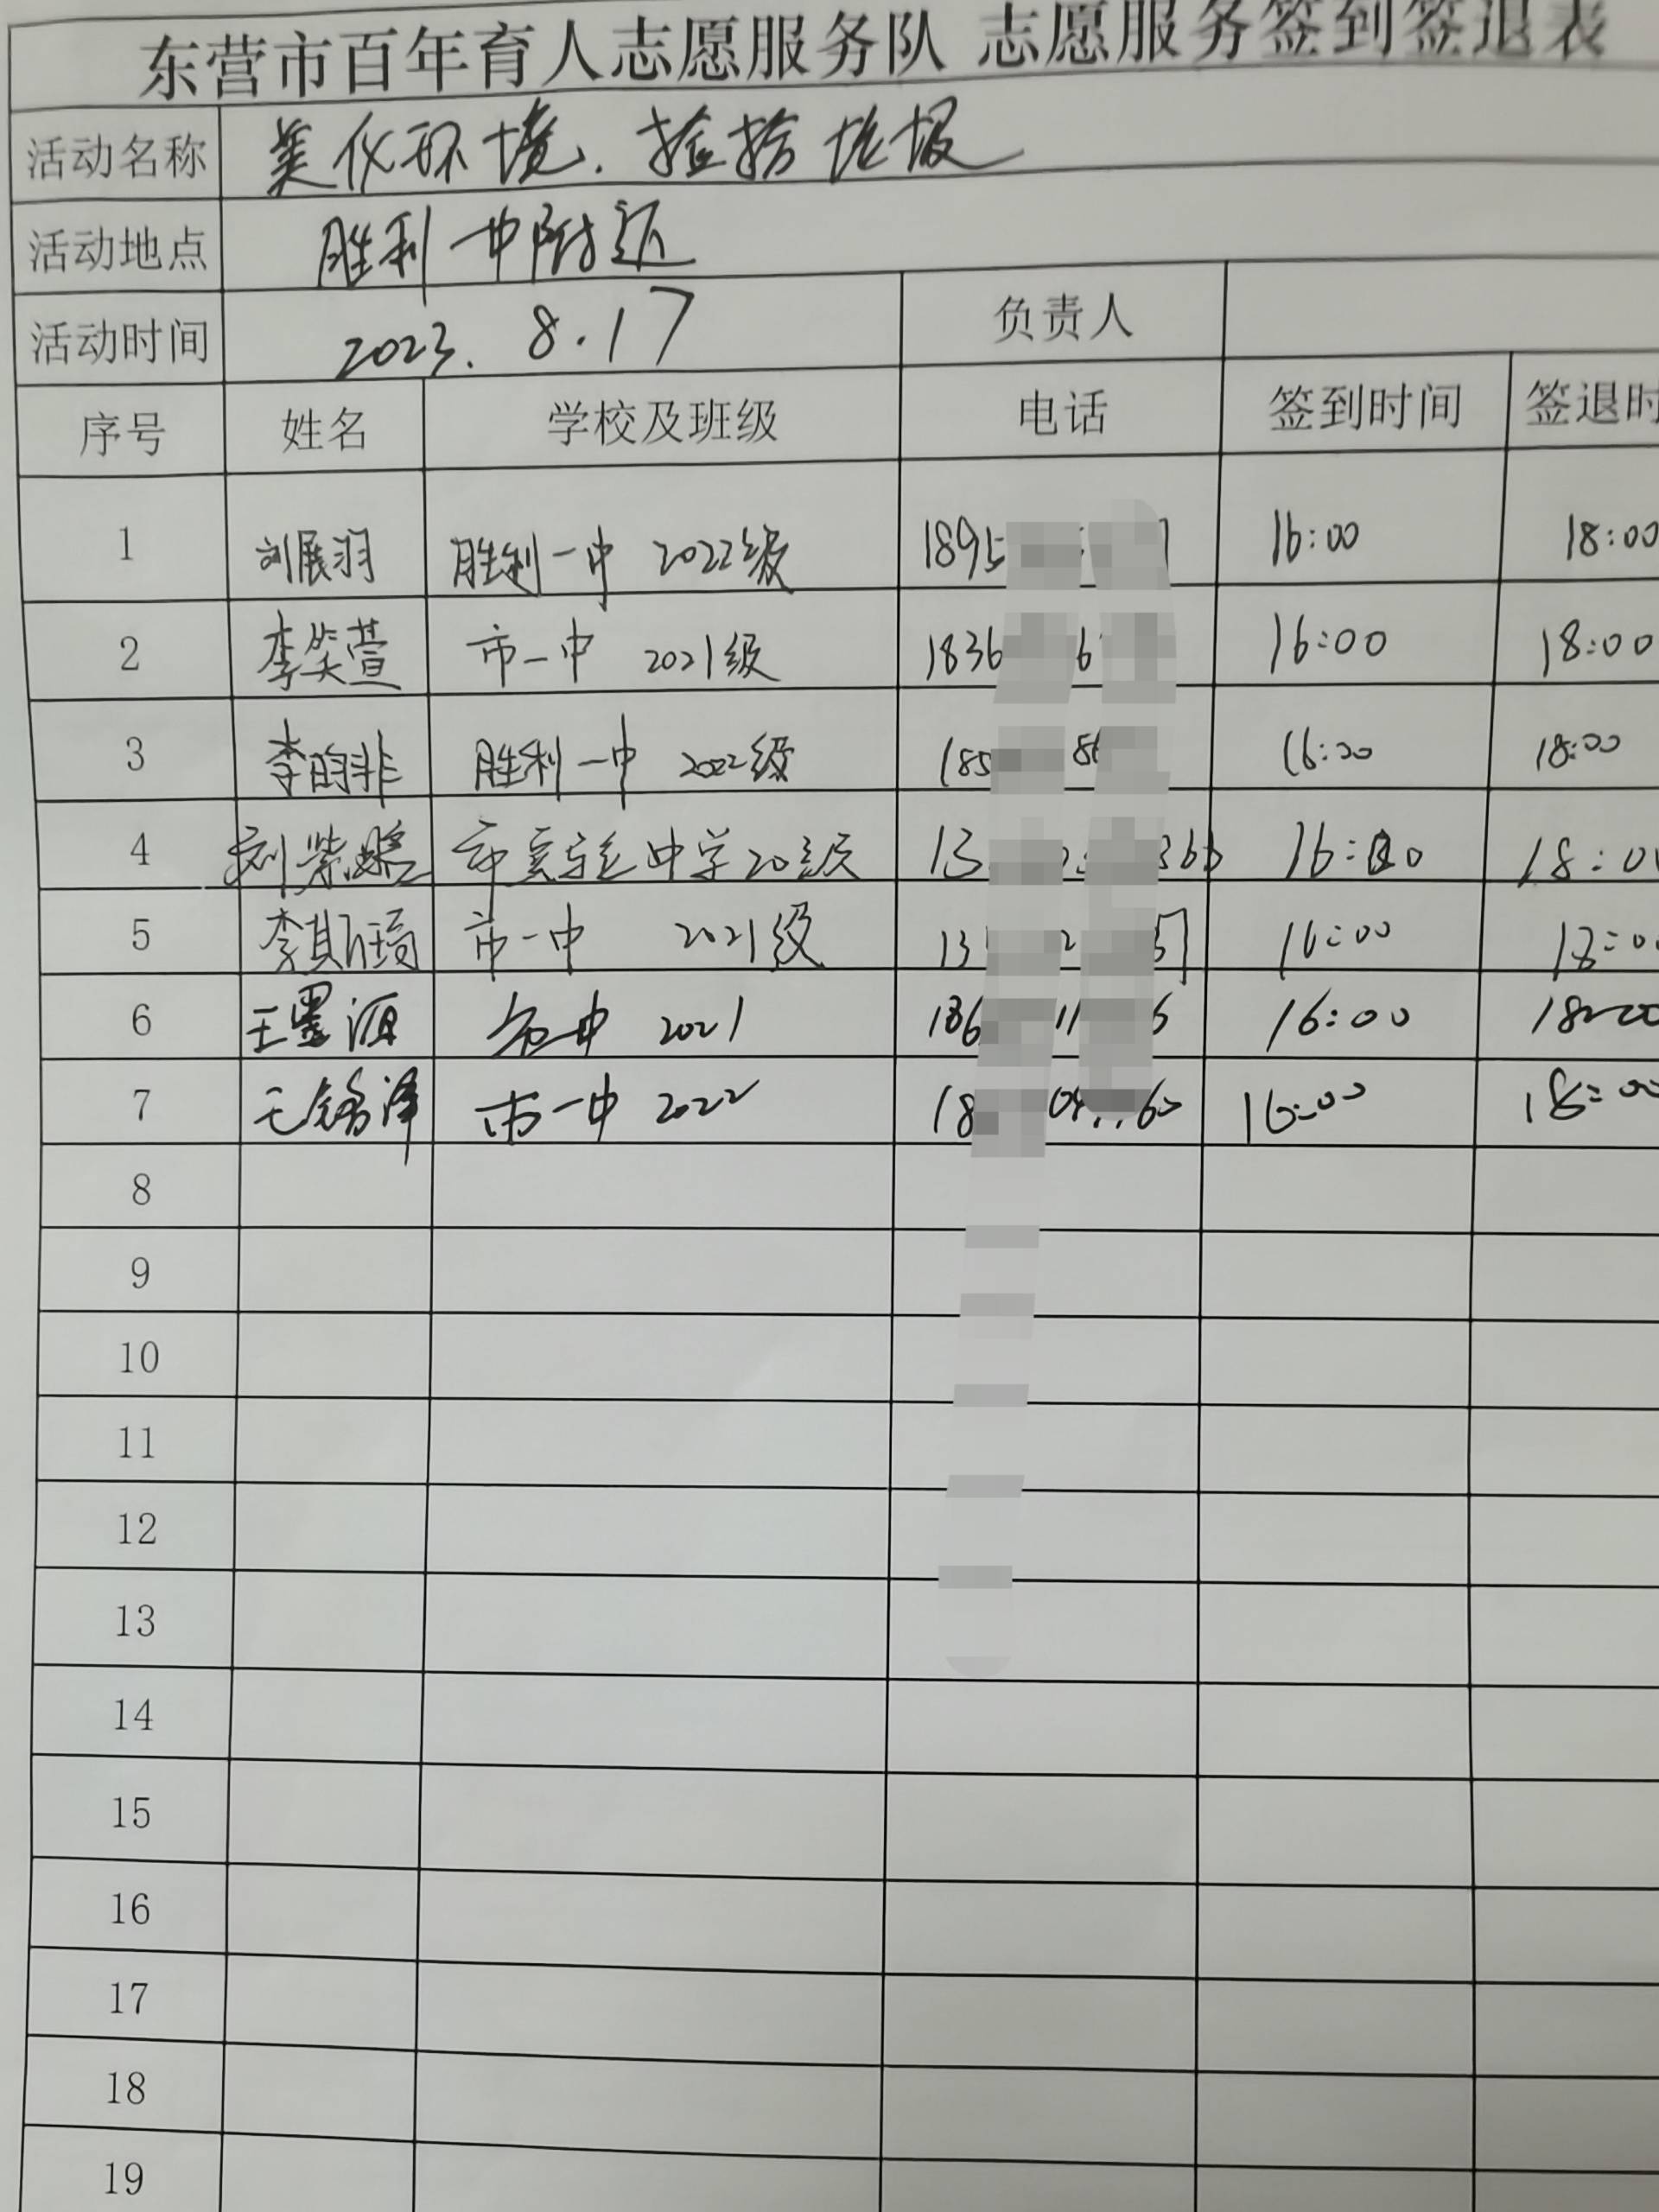 东营市百年育人志愿服务队 志愿服务签到签退表
活动名称 美化环境.捡拾垃圾
活动地点 胜利一中附近
活动时间 2023. 8.17 负责人
序号 姓名 学校及班级 电话 签到时间 签退时
1 刘展羽 胜利一中 2022级 1895 16:00 18:00
2 李笑萱 市一中 2021级 1836 6 16:00 18:00
3 李昀非 胜利一中 2022级 185 86 16:00 18:00
4 刘 市实验中学20级 13 363 16:00 18:0
5 李其 琦 市一中 2021级 13 2 16:00 18:00
6 王墨源 市一中 2021 186 11 6 16:00 18:00
7 泽 市一中 2022 18 04 60 16:00 18:00
8
9
10
11
12
13
14
15
16
17
18
19